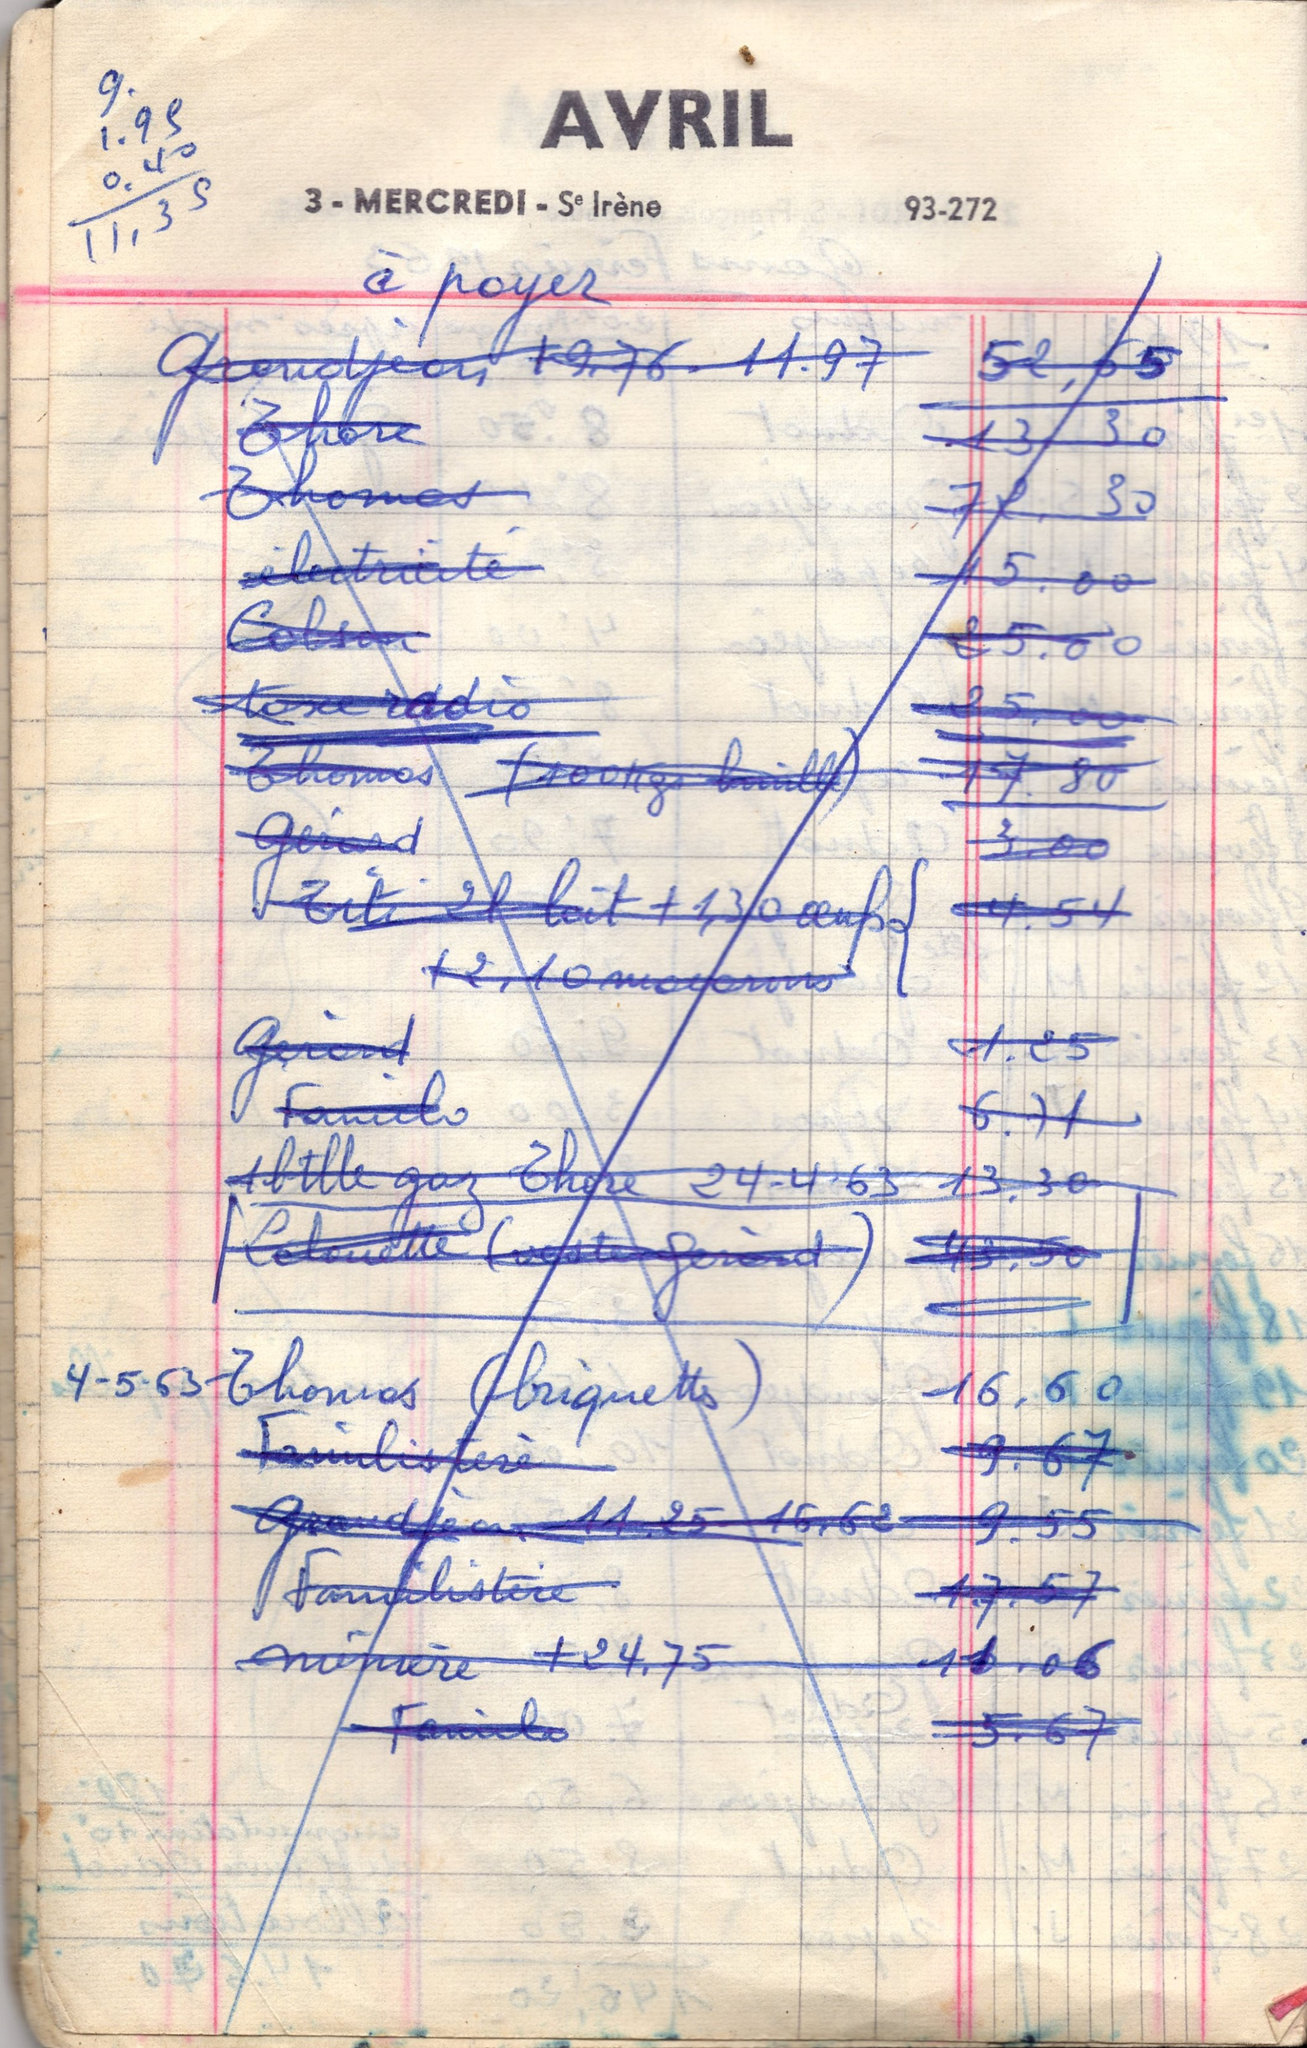 9.
1.95
0.40
11,35
AVRIL
3 - MERCREDI - Sᵉ Irène 93-272
à payer
Grandjean +9.76 - 11.97 52,65
Thore 13 30
Thomas 72. 30
électricité 15.00
Colson 25.00
taxe radio 25.00
Thomas (100 Kgs houille) 17.80
Gérard 3.00
Titi 2l lait + 1,30 œufs 4.54
+2,10 macaronis
Gérard 1.25
Famile 6.71
1 btlle gaz Thore 24-4-63 13.30
(veste Gérard) 43.50
4-5-63 - Thomas (briquettes) 16,60
Familistère 9.67
Grandjean 11,25 16,62 9.55
Familistère 17.57
mémère +24,75 11.06
5.67